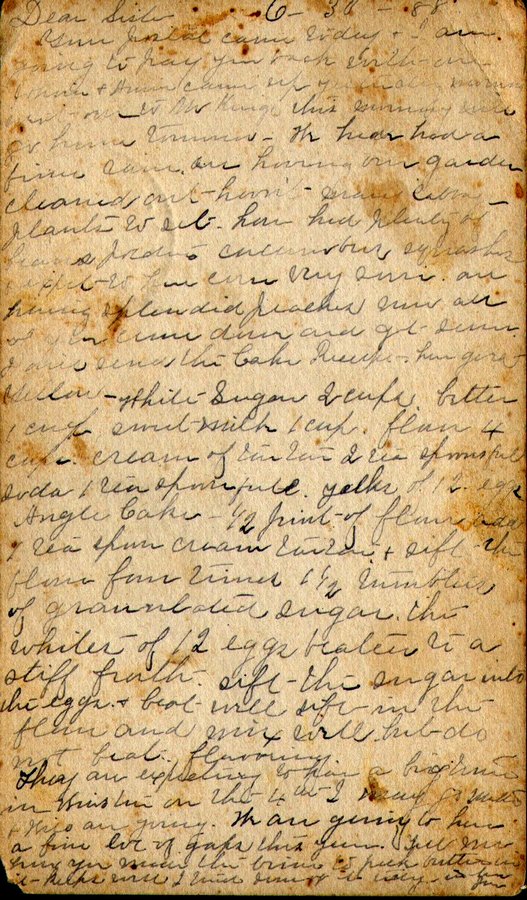 Dear Sister 6-30-88
Your Postal came today + I am
going to pay you back with one
+ Anna came up yesterday
over to this morning will
go home tomorrow - We hear had a
fine rain. are having our garden
cleaned out - haven't many Cabbage
plants to set. have had plenty of
beans potatoes cucumbers squashes
expect to have corn very soon. are
having splendid peaches now all
of you come down and get some
I will send the Cake Receipe - here goes
Yellow - White Sugar 2 cups butter
1 cup sweet milk 1 cup. flour 4
cups. cream of tar tar 2 tea spoonsful
soda 1 tea spoonfull. yolks of 12 eggs
Angle Cake - 1/2 pint of flour add
1 tea spoon cream tartar + sift the
flour four times 1 1/2 tumblers
of grannulated sugar. the
whites of 12 eggs beaten to a
stiff froth. sift the sugar into
the eggs + beat well sift in the
flour and mix well but do
not beat. flavoring
They are expecting to have a big time
in on the 4th I may go
+ are going. We are going to have
a fine lot of gaps this year. Tell me
how you the brine to pack butter in
it keeps well I